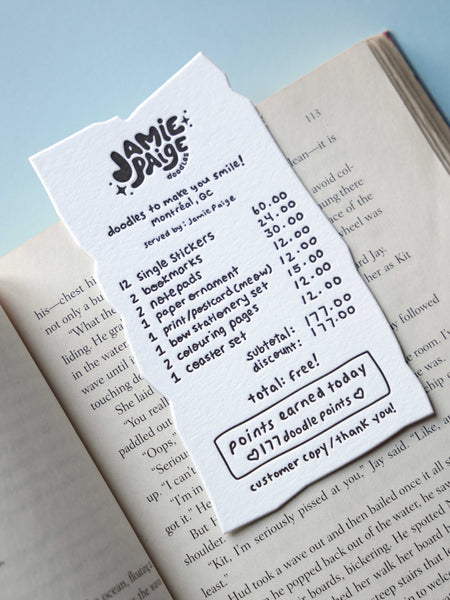 JAMIE
PAIGE
doodles
doodles to make you smile!
montréal, QC
served by: Jamie Paige
12 single stickers 60.00
2 bookmarks 24.00
2 notepads 30.00
1 paper ornament 12.00
1 print/postcard (meow) 12.00
1 bow stationery set 15.00
2 colouring pages 12.00
1 coaster set 12.00
subtotal: 177.00
discount: 177.00
total: free!
points earned today
♡177 doodle points♡
customer copy/thank you!
113
clean—it is
avoid col-
young there
face of the
wheel was
her as Kit
his—chest hi
not only a bu
"What the
liding. He gra
in the water
wave until i
touching de
She laid
"You reall
paddled out
"Oops,
"Seriou
up. "I can't
"I'm in
got it." He
But H
shoulder.
followed
e room. I
"Like, a
"Kit, I'm seriously pissed at you," Jay said.
least."
Hud took a wave out and then bailed once it all s
he popped back out of the water, he sa
boards, bickering. He spotted N
hed her walk her board
steep stairs that le
ocean, floating